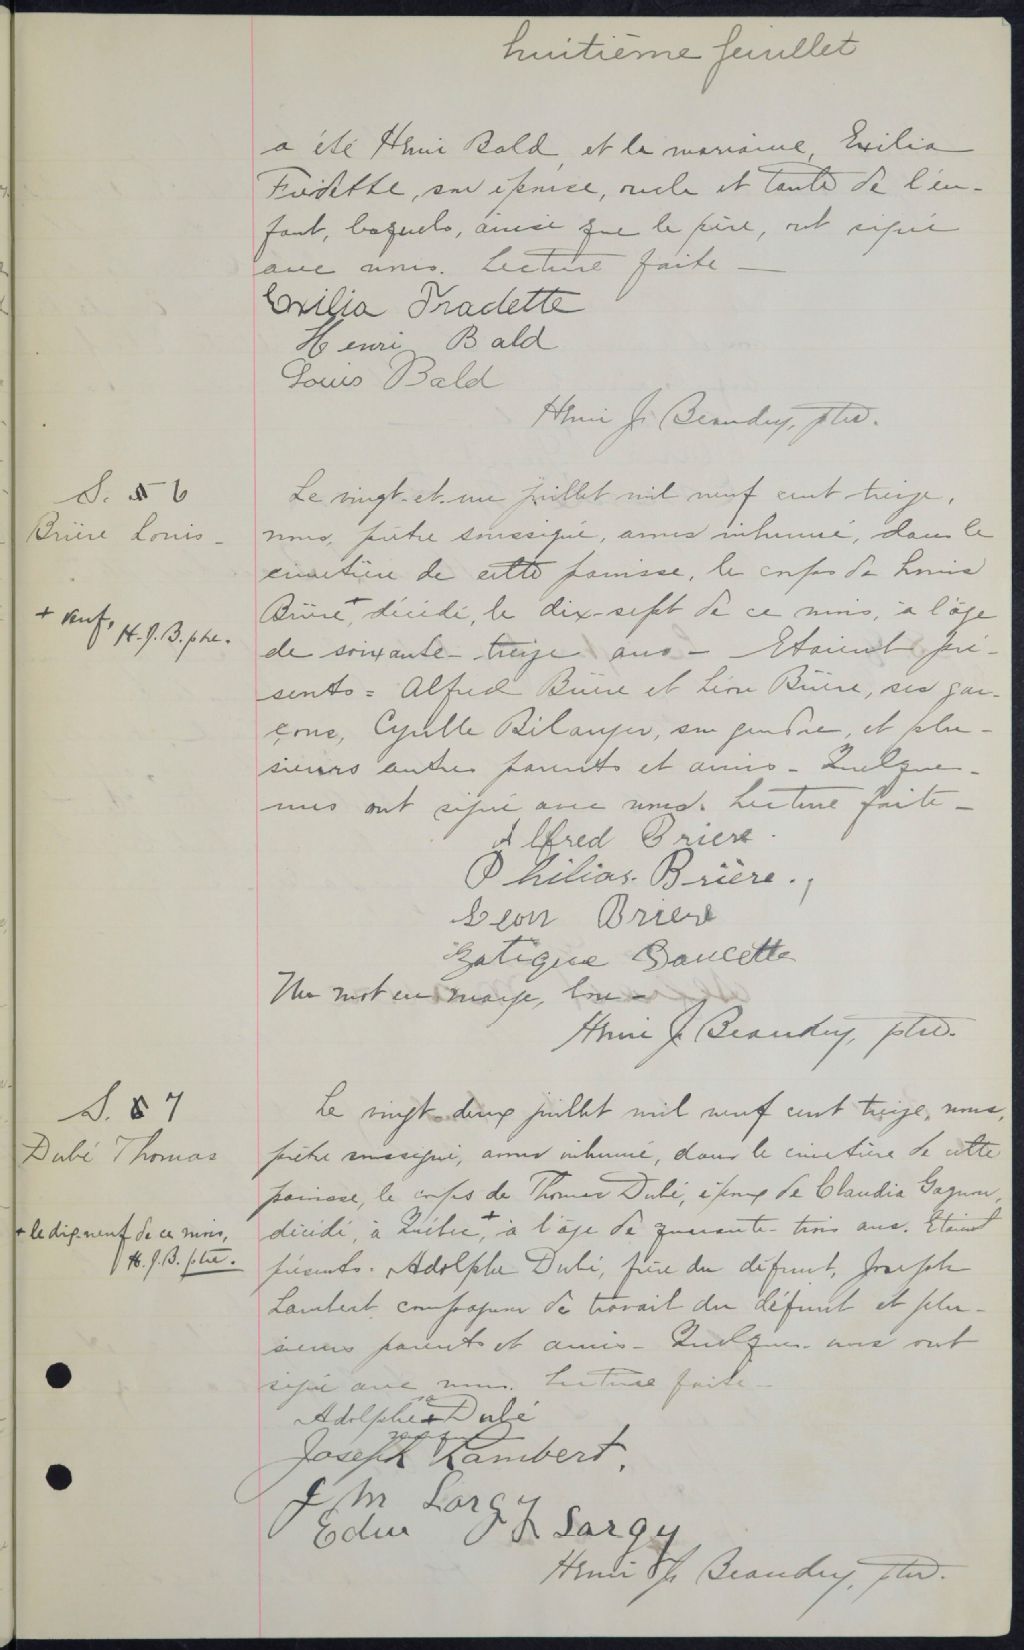 huitième feuillet
a été Henri Bald, et la marraine, Exilia
Fredette, son épouse, oncle et tante de l'en-
fant, lesquels, ainsi que le père, ont signé
avec nous. Lecture faite —
Exilia Fradette
Henri Bald
Louis Bald
Henri J. Beaudry, ptre.
S. 6
Brière Louis -
+ veuf,
H. J. B. ptre.
Le vingt-et-un juillet mil neuf cent treize,
nous, prêtre soussigné, avons inhumé, dans le
cimetière de cette paroisse, le corps de Louis
Brière +, décédé, le dix-sept de ce mois, à l'âge
de soixante-treize ans - Etaient pré-
sents = Alfred Brière et Léon Brière, ses gar-
çons, Cyrille Bélanger, son gendre, et plu-
sieurs autres parents et amis - Quelques-
uns ont signé avec nous. Lecture faite -
Alfred Briere
Philias Brière.
Leon Briere
Doucette
Un mot en marge, bon -
Henri J. Beaudry, ptre.
S. 7
Dubé Thomas
+ le dix-neuf de ce mois,
H. J. B. ptre.
Le vingt-deux juillet mil neuf cent treize, nous,
prêtre soussigné, avons inhumé, dans le cimetière de cette
paroisse, le corps de Thomas Dubé, époux de Claudia Gagnon,
décédé, à Québec +, à l'âge de quarante-trois ans. Etaient
présents. Adolphe Dubé, frère du défunt, Joseph
Lambert compagnon de travail du défunt et plu-
sieurs parents et amis - Quelques-uns ont
signé avec nous. Lecture faite -
Adolphe + Dubé
Joseph Lambert.
J M Sargy
J Sargy
Henri J. Beaudry, ptre.